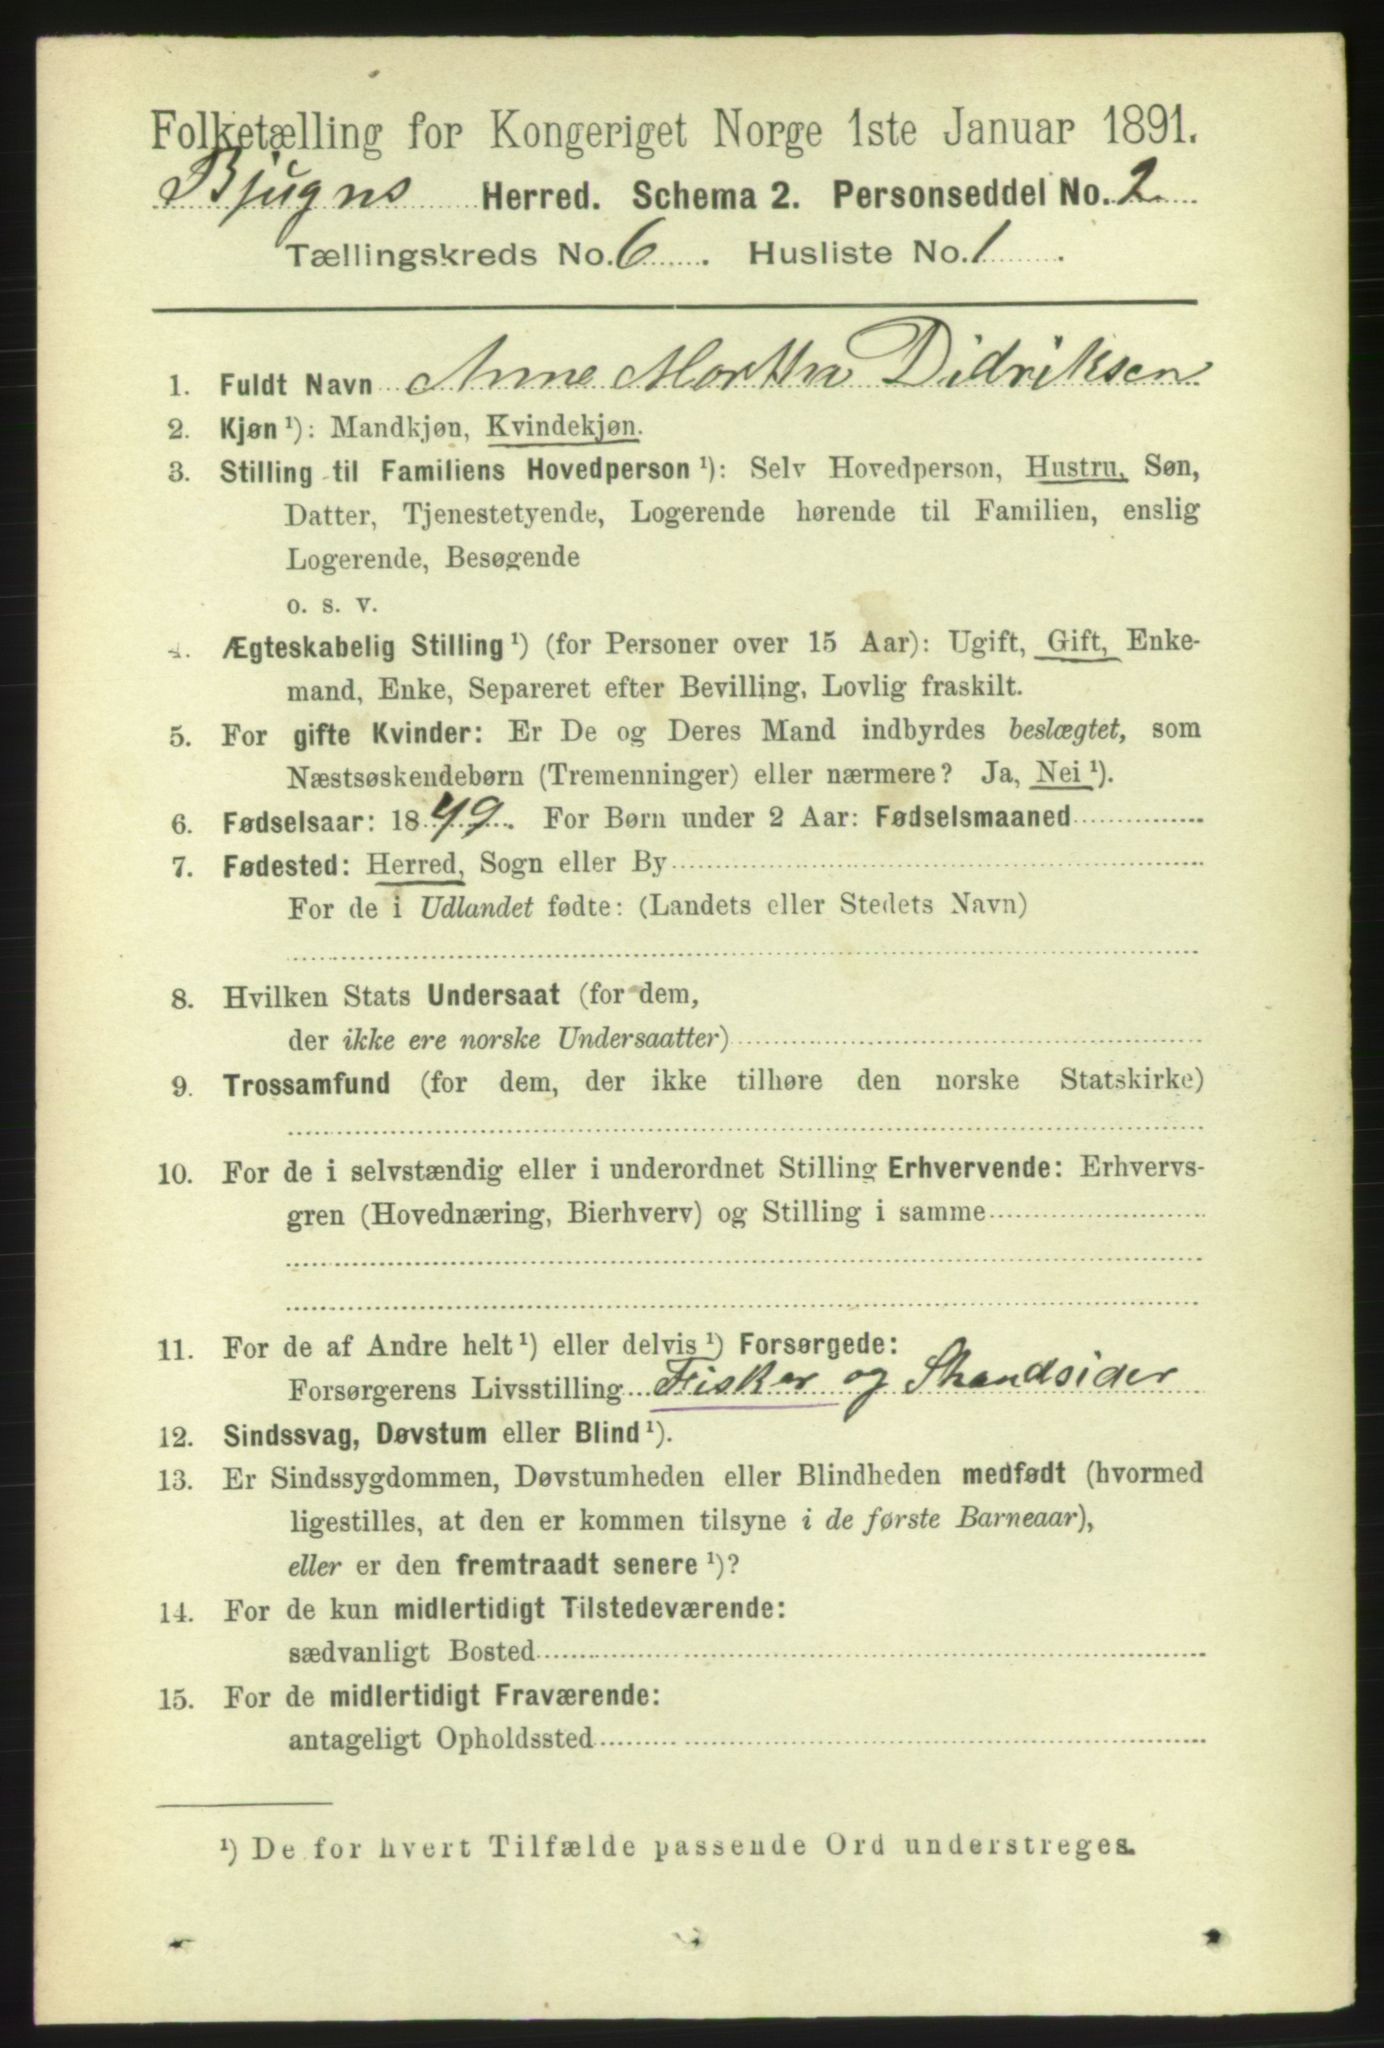 Folketælling for Kongeriget Norge 1ste Januar 1891.
Bjugns Herred. Schema 2. Personseddel No. 2.
Tællingskreds No. 6. Husliste No. 1.
1. Fuldt Navn Anne Martha Didriksen
2. Kjøn ¹): Mandkjøn, Kvindekjøn.
3. Stilling til Familiens Hovedperson ¹): Selv Hovedperson, Hustru, Søn,
Datter, Tjenestetyende, Logerende hørende til Familien, enslig
Logerende, Besøgende
o. s. v.
4. Ægteskabelig Stilling ¹) (for Personer over 15 Aar): Ugift, Gift, Enke-
mand, Enke, Separeret efter Bevilling, Lovlig fraskilt.
5. For gifte Kvinder: Er De og Deres Mand indbyrdes beslægtet, som
Næstsøskendebørn (Tremenninger) eller nærmere? Ja, Nei ¹).
6. Fødselsaar: 1849. For Børn under 2 Aar: Fødselsmaaned
7. Fødested: Herred, Sogn eller By
For de i Udlandet fødte: (Landets eller Stedets Navn)
8. Hvilken Stats Undersaat (for dem,
der ikke ere norske Undersaatter)
9. Trossamfund (for dem, der ikke tilhøre den norske Statskirke)
10. For de i selvstændig eller i underordnet Stilling Erhvervende: Erhvervs-
gren (Hovednæring, Bierhverv) og Stilling i samme
11. For de af Andre helt ¹) eller delvis ¹) Forsørgede:
Forsørgerens Livsstilling Fisker og Strandsider
12. Sindssvag, Døvstum eller Blind ¹).
13. Er Sindssygdommen, Døvstumheden eller Blindheden medfødt (hvormed
ligestilles, at den er kommen tilsyne i de første Barneaar),
eller er den fremtraadt senere ¹)?
14. For de kun midlertidigt Tilstedeværende:
sædvanligt Bosted
15. For de midlertidigt Fraværende:
antageligt Opholdssted
¹) De for hvert Tilfælde passende Ord understreges.